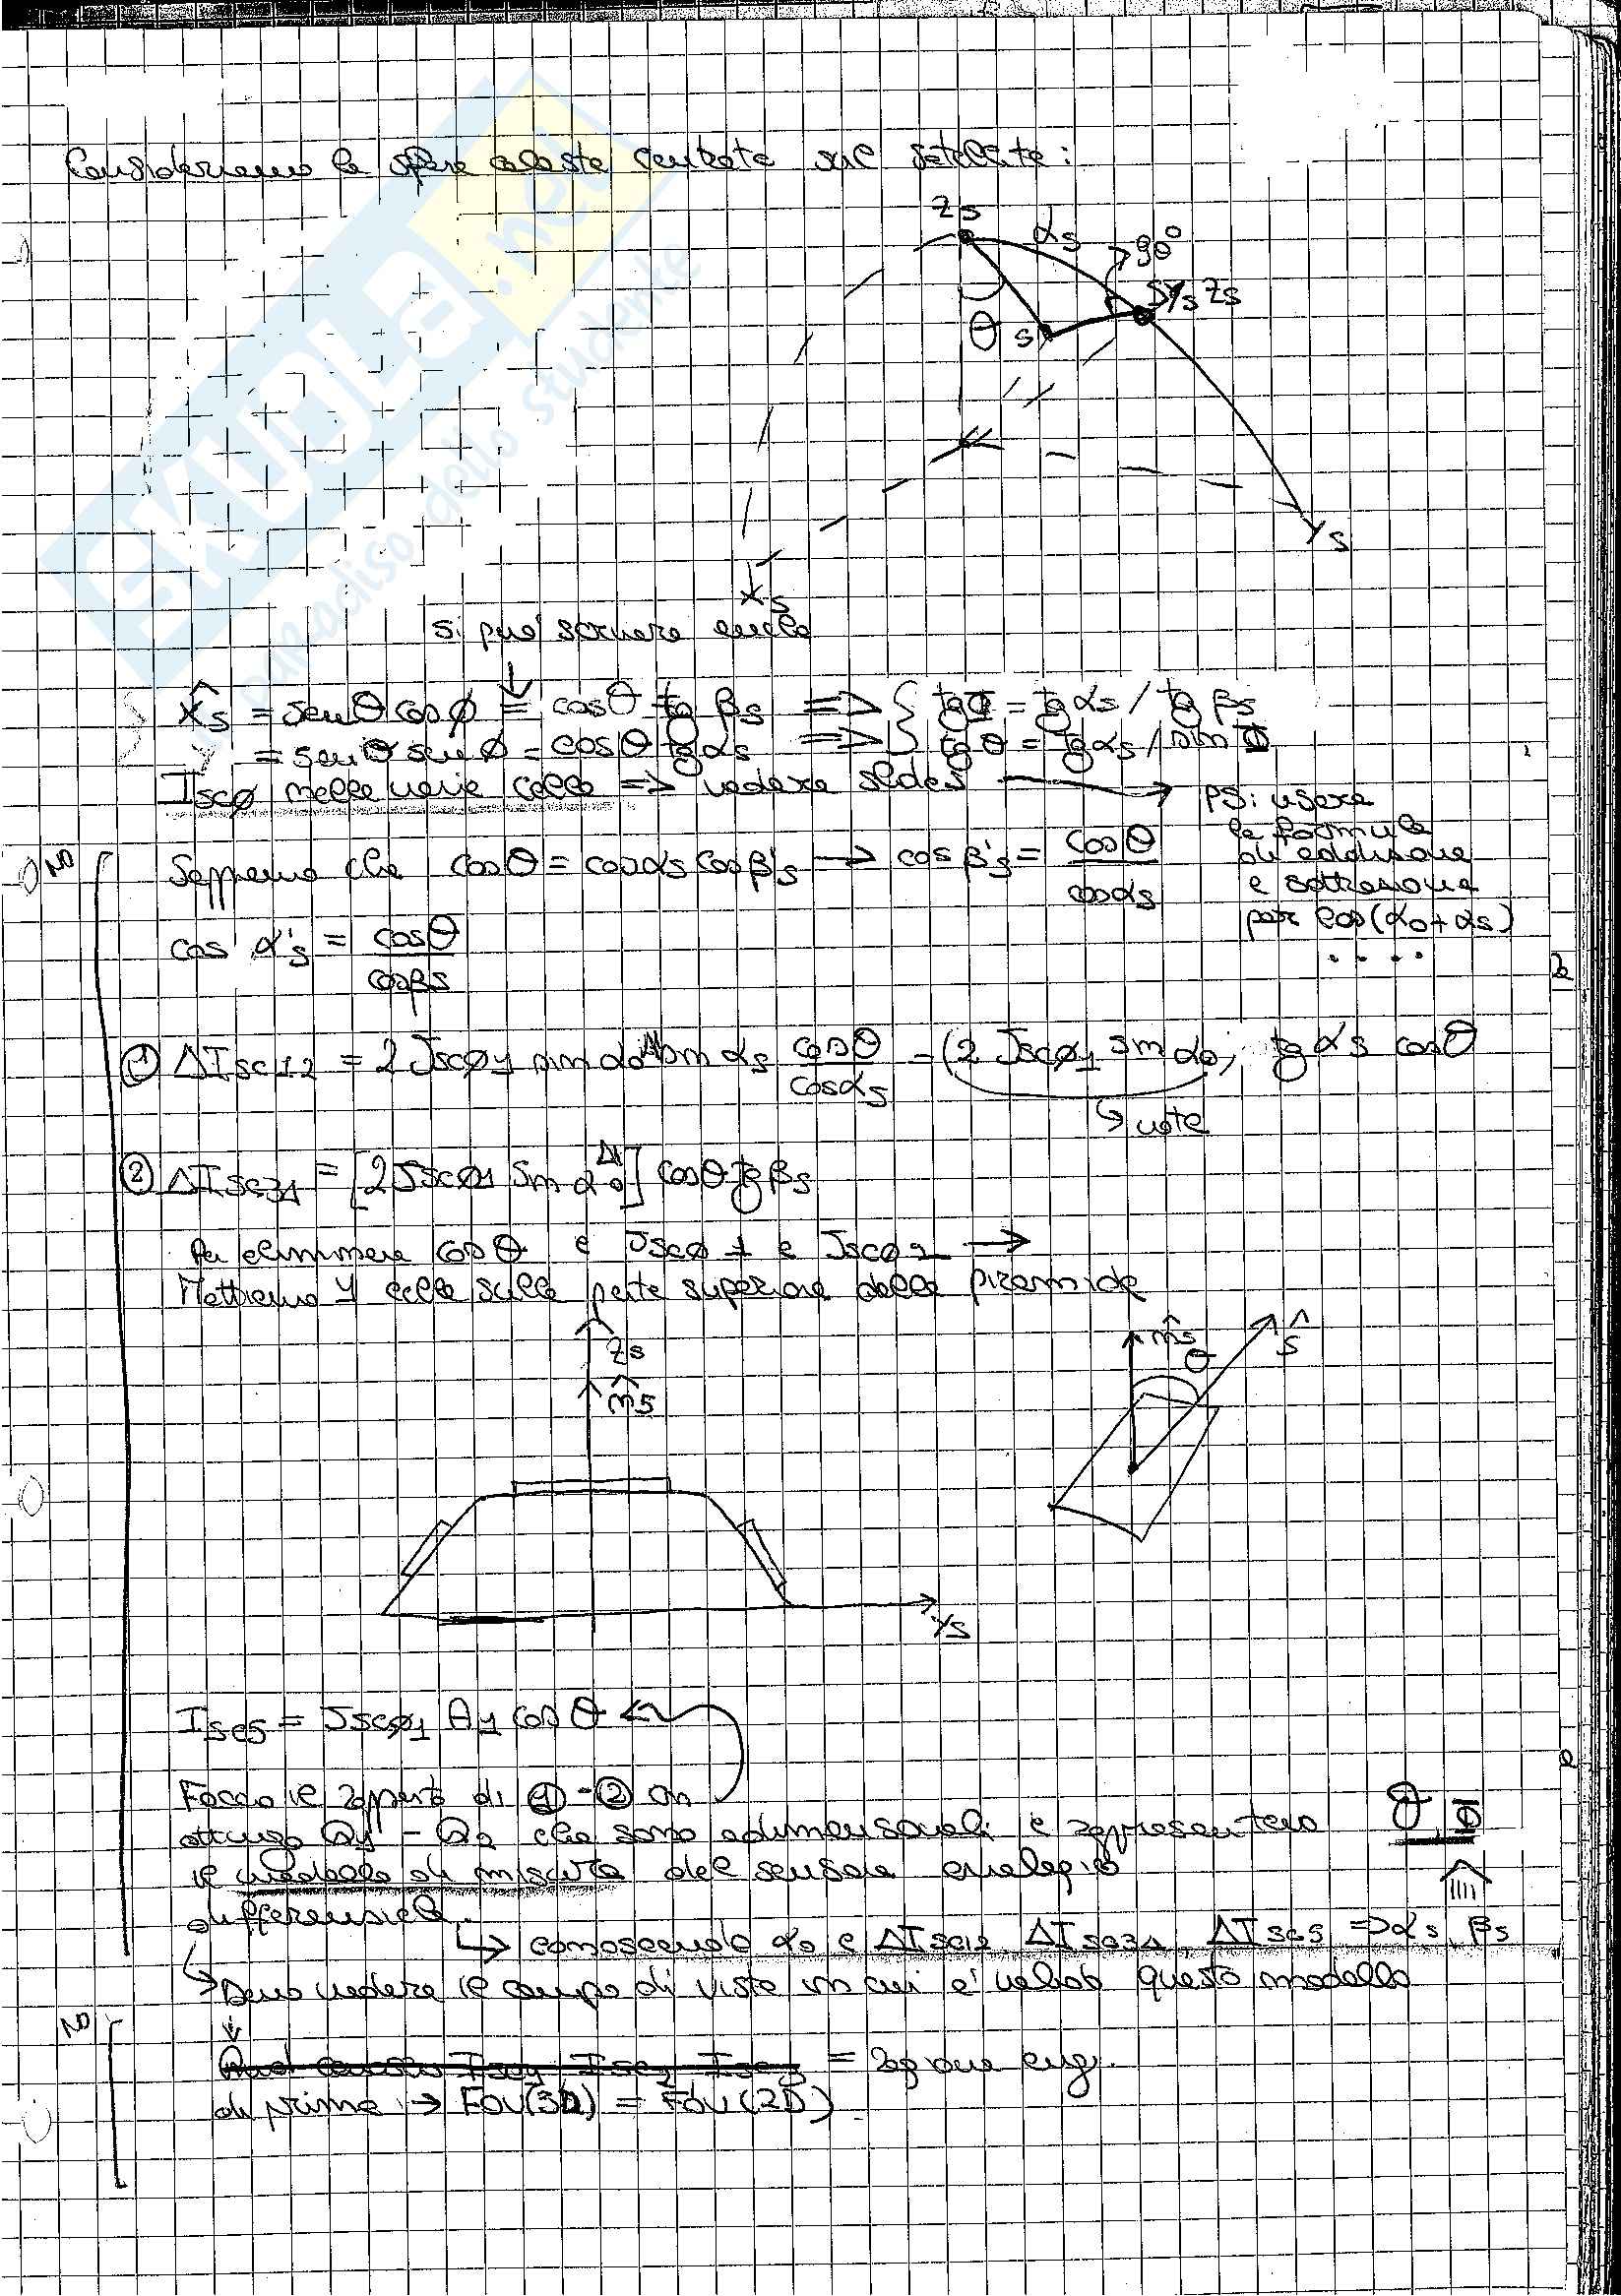 Consideriamo la sfera celeste centrata sul satellite:
Zs
αs
90°
SYsZs
θ
s
Ys
Xs
si può scrivere anche
X̂s = senθ cosφ = cosθ tg βs => { tgΦ = tg αs / tg βs
= senθ senφ = cosθ tg αs => { tgθ = tg αs / sin Φ
Iscφ nelle varie celle => vedere slides
PS: usare
le formule
di addizione
e sottrazione
per cos(α0+αs)
....
NO
Sappiamo che cosθ = cosαs cosβ's → cosβ's = cosθ / cosαs
cos α's = cosθ / cosβs
① ΔIsc12 = 2Jscφ1 sin α0 A1 sin αs cosθ / cosαs = (2Jscφ1 sin α0) tg αs cosθ
note
② ΔIsc34 = [2Jscφ1 sin α0 A1] cosθ tg βs
Per eliminare cosθ e Jscφ1 e Jscφ2 →
Mettiamo 1 cella sulla parte superiore della piramide
Zs
n̂5
n̂5
θ
ŝ
Ys
Isc5 = Jscφ1 A1 cosθ
Faccio il rapporto di ① - ② con
ottengo Q1 - Q2 che sono adimensionali e rappresentano
il modello di misura del sensore analogico
differenziale.
θ, Φ
↳ conoscendo α0 e ΔIsc12, ΔIsc34, ΔIsc5 => αs, βs
↳ Devo vedere il campo di vista in cui è valido questo modello
NO
= 2
di prima → FOV(3D) = FOV(2D)